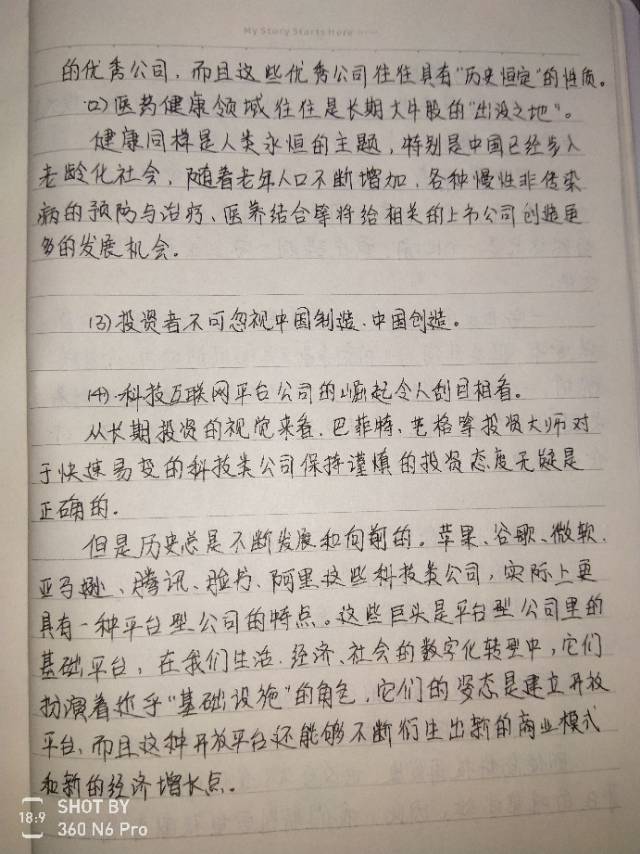 My Story Starts Here
的优秀公司，而且这些优秀公司往往具有“历史恒定”的性质。
(2)医药健康领域往往是长期大牛股的“出没之地”。
健康同样是人类永恒的主题，特别是中国已经步入
老龄化社会，随着老年人口不断增加，各种慢性非传染
病的预防与治疗、医养结合等将给相关的上市公司创造更
多的发展机会。
(3)投资者不可忽视中国制造、中国创造。
(4)科技互联网平台公司的崛起令人刮目相看。
从长期投资的视觉来看，巴菲特、芒格等投资大师对
于快速易变的科技类公司保持谨慎的投资态度无疑是
正确的。
但是历史总是不断发展和向前的。苹果、谷歌、微软、
亚马逊、腾讯、脸书、阿里这些科技类公司，实际上更
具有一种平台型公司的特点。这些巨头是平台型公司里的
基础平台，在我们生活、经济、社会的数字化转型中，它们
扮演着近乎“基础设施”的角色，它们的姿态是建立开放
平台，而且这种开放平台还能够不断衍生出新的商业模式
和新的经济增长点。
18:9
SHOT BY
360 N6 Pro